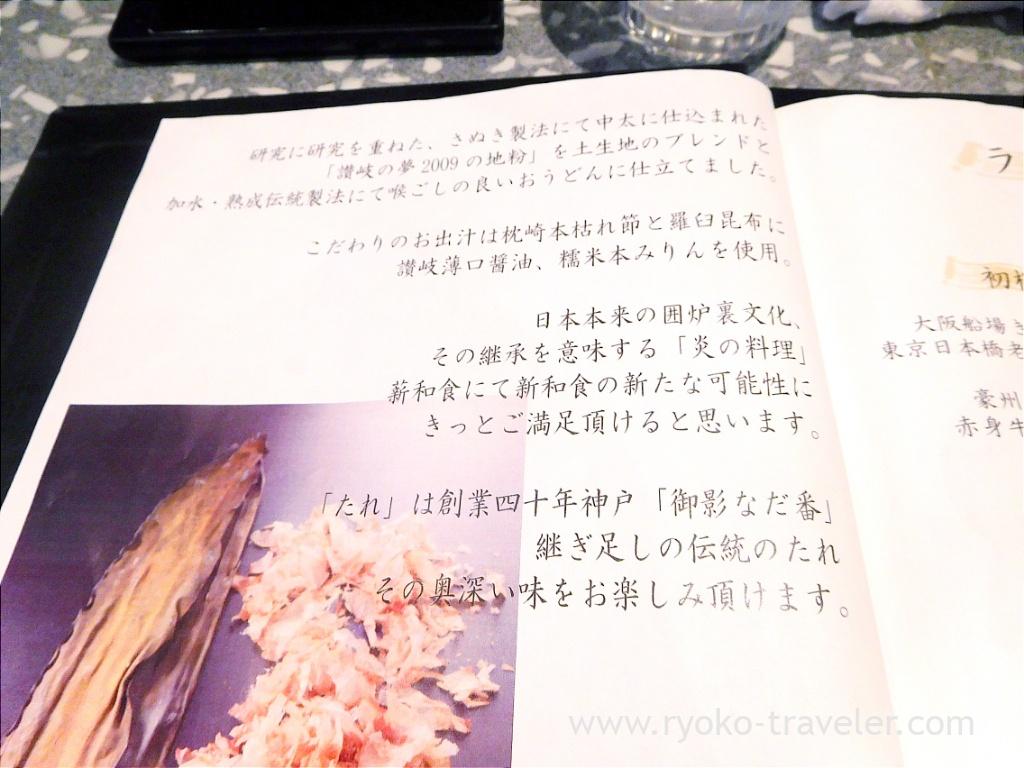 研究に研究を重ねた、さぬき製法にて中太に仕込まれた
「讃岐の夢2009の地粉」を土生地のブレンドと
加水・熟成伝統製法にて喉ごしの良いおうどんに仕立てました。
こだわりのお出汁は枕崎本枯れ節と羅臼昆布に
讃岐薄口醤油、糯米本みりんを使用。
日本本来の囲炉裏文化、
その継承を意味する「炎の料理」
薪和食にて新和食の新たな可能性に
きっとご満足頂けると思います。
「たれ」は創業四十年神戸「御影なだ番」
継ぎ足しの伝統のたれ
その奥深い味をお楽しみ頂けます。
ラ
初
大阪船場
東京日本橋老
豪州
赤身牛
www.ryoko-traveler.com